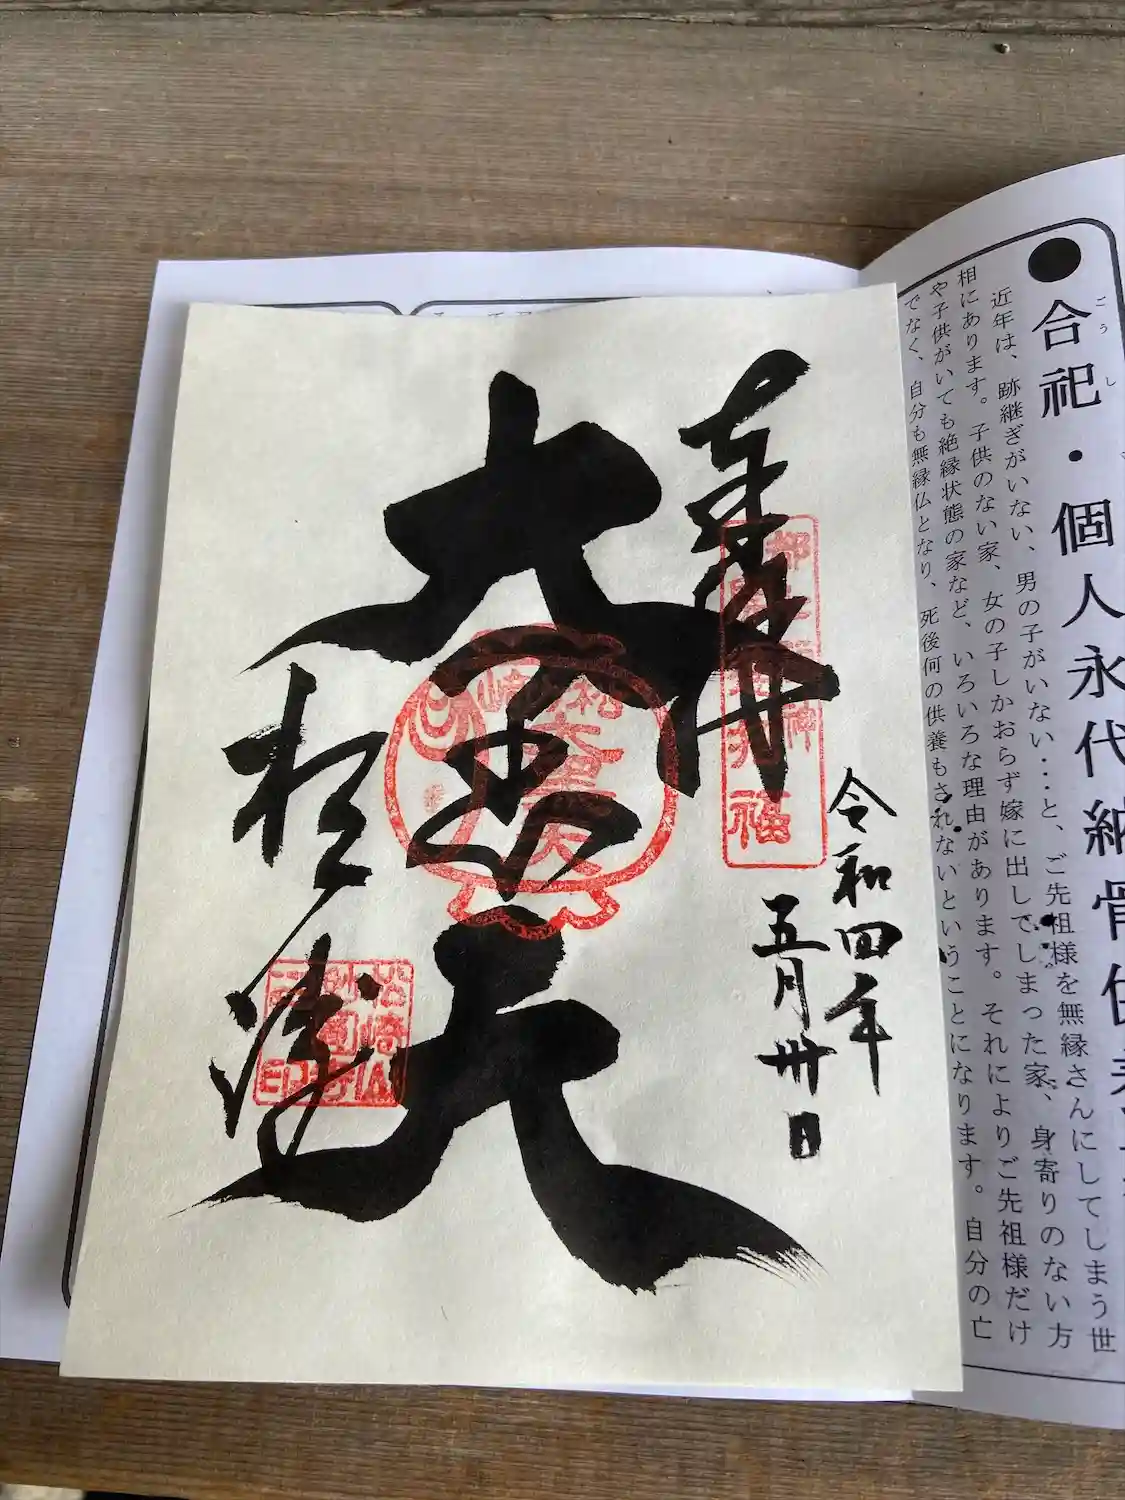 ●合祀・個人永代納骨
ごうし
近年は、跡継ぎがいない、男の子がいない‥‥と、ご先祖様を無縁さんにしてしまう世
相にあります。子供のない家、女の子しかおらず嫁に出してしまった家、身寄りのない方
や子供がいても絶縁状態の家など、いろいろな理由があります。それによりご先祖様だけ
でなく、自分も無縁仏となり、死後何の供養もされないということになります。自分の亡
奉拝
令和四年
五月卅日
大黒天
松崎山